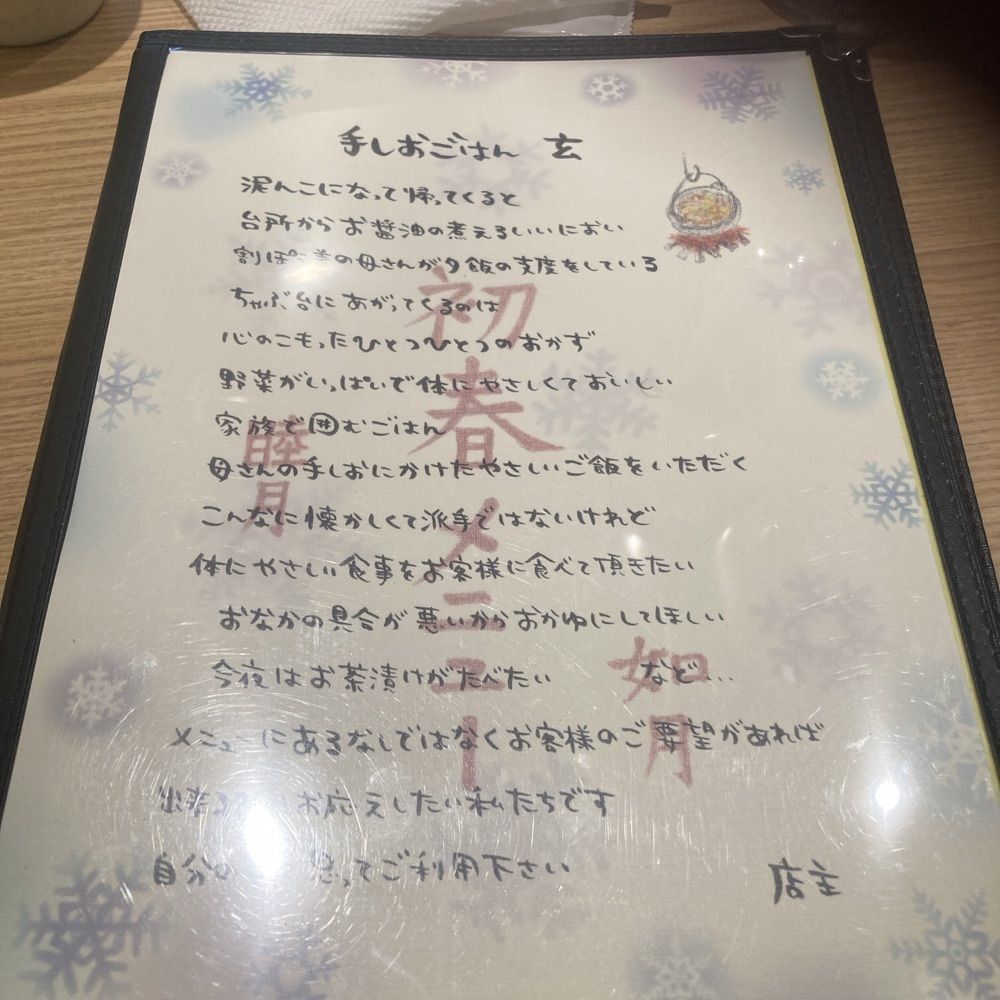 手しおごはん 玄
泥んこになって帰ってくると
台所からお醤油の煮えるいいにおい
割ぽう着の母さんが夕飯の支度をしている
ちゃぶ台にあがってくるのは
心のこもったひとつひとつのおかず
野菜がいっぱいで体にやさしくておいしい
家族で囲むごはん
母さんの手しおにかけたやさしいご飯をいただく
こんなに懐かしくて派手ではないけれど
体にやさしい食事をお客様に食べて頂きたい
おなかの具合が悪いからおかゆにしてほしい
今夜はお茶漬けがたべたい など…
メニューにあるなしではなくお客様のご要望があれば
出来る お応えしたい私たちです
自分の 思ってご利用下さい
店主
初春メニュー
睦月
如月